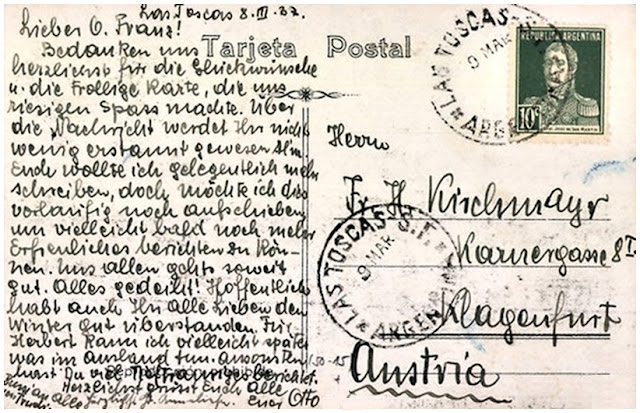 Las Toscas 8.III.37.
Lieber O. Franz!
Bedanken uns
herzlichst für die Glückwünsche
u. die drollige Karte, die uns
riesigen Spass machte. Über
die Nachricht werdet Ihr nicht
wenig erstaunt gewesen sein.
Euch wollte ich gelegentlich mehr
schreiben, doch möchte ich dies
vorläufig noch aufschieben
um vielleicht bald noch mehr
Erfreuliches berichten zu kön-
nen. Uns allen gehts soweit
gut. Alles gedeiht! Hoffentlich
habt auch Ihr alle Lieben den
Winter gut überstanden. Für
Herbert kann ich vielleicht später
was im Ausland tun. ansonsten
hast Du viel berichtet.
Herzlichst grüsst Euch alle
Euer Otto
an alle
Tarjeta Postal
LAS TOSCAS S.F.
9 MAR
ARGENTINA
REPUBLICA ARGENTINA
10c
Herrn
Fr. H. Kirschmayr
Karnergasse 8 I
Klagenfurt
Austria
LAS TOSCAS S.F.
9 MAR
ARGENTINA